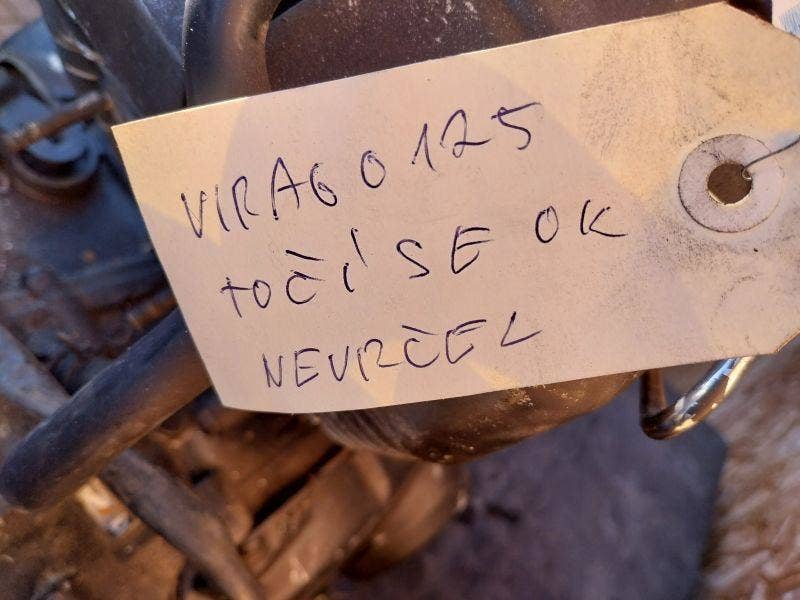 VIRAGO 125
TOČÍ SE OK
NEVRČEL